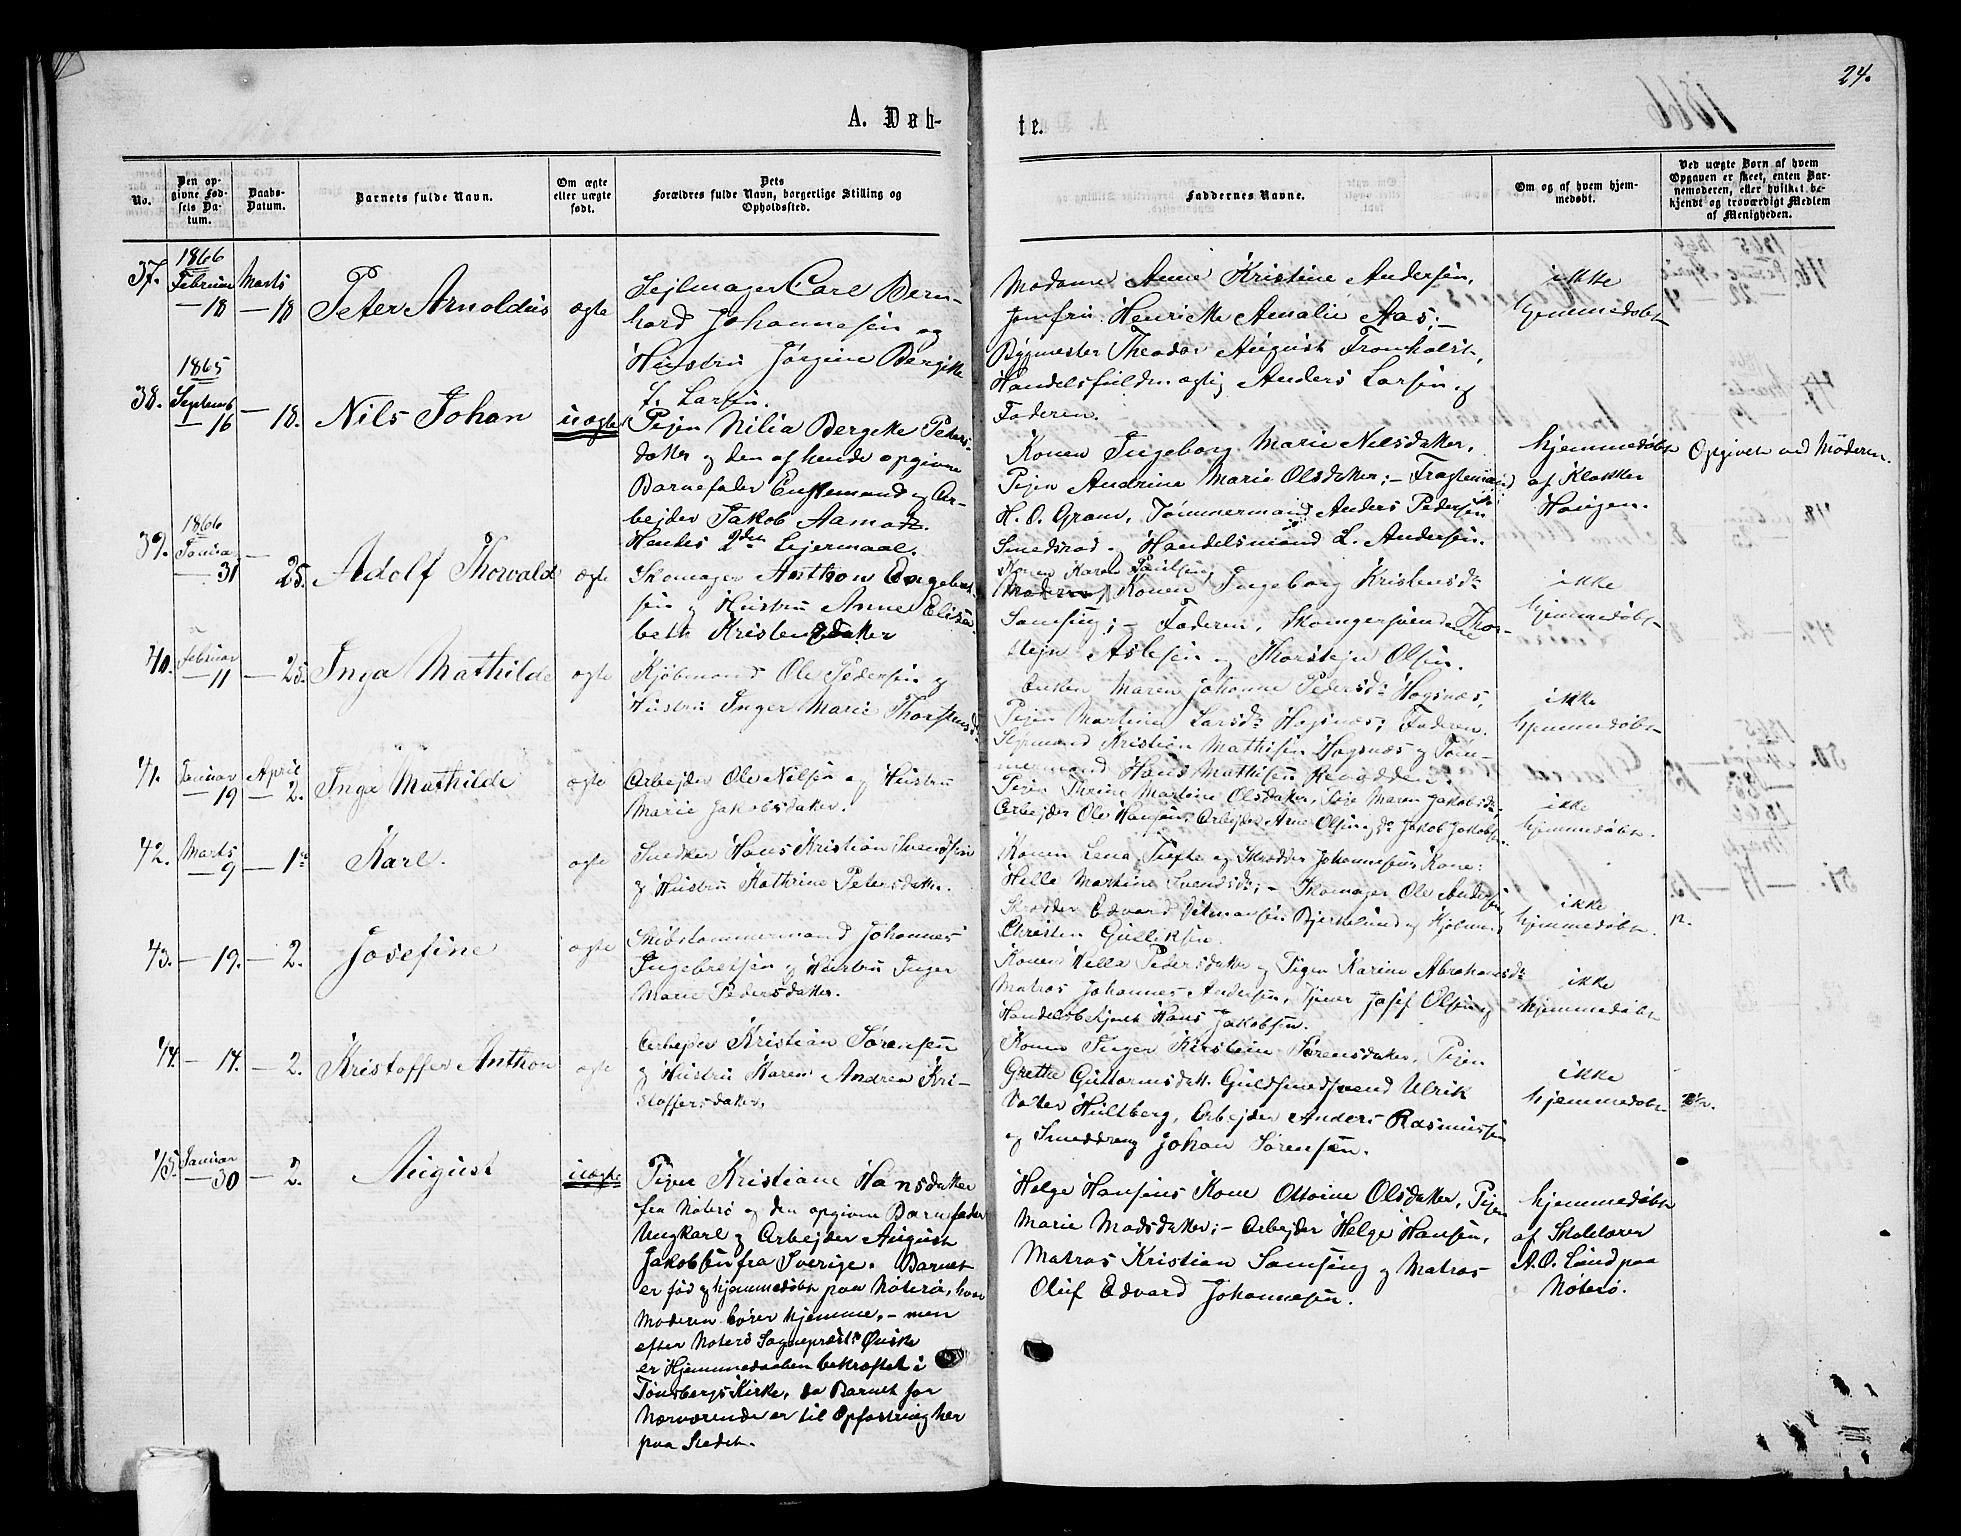 24.
A. Døb-
te.
No.
Den op-
givne Fød-
sels Da-
tum.
Daabs-
Datum.
Barnets fulde Navn.
Om ægte
eller uægte
født.
Dets
Forældres fulde Navn, borgerlige Stilling og
Opholdssted.
Faddernes Navne.
Om og af hvem hjem-
medøbt.
Ved uægte Børn af hvem
Opgaven er skeet, enten Bar-
nemoderen, eller hvilket be-
kjendt og troværdigt Medlem
af Menigheden.
37.
1866
Februar
— 18
Marts
— 18
Peter Arnoldus
ægte
Sejlmager Carl Bern-
hard Johannesen og
Hustru Jørgine Bergitte
f. Larsen.
Madame Anne Kristine Andersen,
Jomfru Henriette Amalie Aas; —
Bygmester Theodor August Fronholst,
Handelsfuldmægtig Anders Larsen og
Faderen.
ikke
hjemmedøbt
38.
1865
Septemb
— 16
— 18.
Nils Johan
uægte
Pigen Nilia Bergitte Peters-
datter og den af hende opgivne
Barnefader Enkemand og Ar-
bejder Jakob Aamodt.
Hendes 2det Lejermaal.
Konen Ingeborg Marie Nilsdatter,
Pigen Andrine Marie Olsdatter; — Fragtemand
H. O. Gram, Tømmermand Anders Pedersen
Smedsrød og Handelsmand L. Andersen.
hjemmedøbt
af Klokker
Haugen.
Opgivet ved Moderen.
39.
1866
Januar
— 31
— 25.
Adolf Thorvald
ægte
Skomager Anthon Engebret-
sen og Hustru Anne Elisa-
beth Kristensdatter
Konen Karen Paulsen,
Konen Ingeborg Kristensdr
Samsing; — Faderen, Skomagersvendene Thor-
stejn Aslesen og Thorstejn Olsen.
ikke
hjemmedøbt
40.
Februar
— 11
— 25.
Inga Mathilde
ægte
Kjøbmand Ole Pedersen og
Hustru Inger Marie Thorstensdr
Enken Maren Johanne Pedersdr Hogsnæs,
Pigen Martine Larsdr Hogsnæs; Faderen.
Styrmand Kristian Mathisen Hogsnæs og Tøm-
mermand Hans Mathisen
ikke
hjemmedøbt
41.
Januar
— 19
April
— 2.
Inga Mathilde
ægte
Arbejder Ole Nilsen og Hustru
Marie Jakobsdatter.
Pigen Thrine Martine Olsdatter, Maren Jakobsdr,
Arbejder Ole Hansen, Arbejder Arne Olsen og Jakob Jakobs.
ikke
hjemmedøbt.
42.
Marts
— 9
Karl.
ægte
Snedker Hans Kristian Svendsen
og Hustru Kathrine Petersdatter.
Konen Lena og Skrædder Johannesens Kone:
Helle Martine Svendsdr; — Skomager Ole Andersen,
Skrædder Edvard Bjerkelund og Kjøbmand
Christen Gulliksen.
ikke
hjemmedøbt.
43.
— 19.
— 2.
Josefine
ægte
Skibstømmermand Johannes
Ingebretsen og Hustru Inger
Marie Pedersdatter.
Konen Hella Pedersdatter og Pigen Karine Abrahamsdr
Matros Johannes Andersen, Tjener Josef Olsen og
Handelsbetjent Hans Jakobsen.
ikke
hjemmedøbt
44.
— 14.
— 2.
Kristoffer Anthon
ægte
Arbejder Kristian Sørensen
og Hustru Karen Andrea Kri-
stoffersdatter.
Konen Inger Kirstine Sørensdatter, Pigen
Grethe Guttormsdatt. Guldsmedsvend Ulrik
Hultberg, Arbejder Anders Rasmussen
og Smeddreng Johan Sørensen.
ikke
hjemmedøbt
45.
Januar
— 30
— 2.
August
uægte
Pigen Kristiane Hansdatter
fra Nøterø og den opgivne Barnefader
Ungkarl og Arbejder August
Jakobsen fra Sverige. Barnet
er fød og hjemmedøbt paa Nøterø, hvor
Moderen hører hjemme, — men
efter Nøterø Sogneprests Ønske
er Hjemmedaaben bekræftet i
Tønsbergs Kirke, da Barnet for
Nærværende er til Opfostring her
paa Stedet.
Helge Hansens Kone Ottoine Olsdatter, Pigen
Marie Madsdatter; — Arbejder Helge Hansen,
Matros Kristian Samsing og Matros
Oluf Edvard Johannesen.
hjemmedøbt
af Skolelærer
A. O. Lund paa
Nøterø.